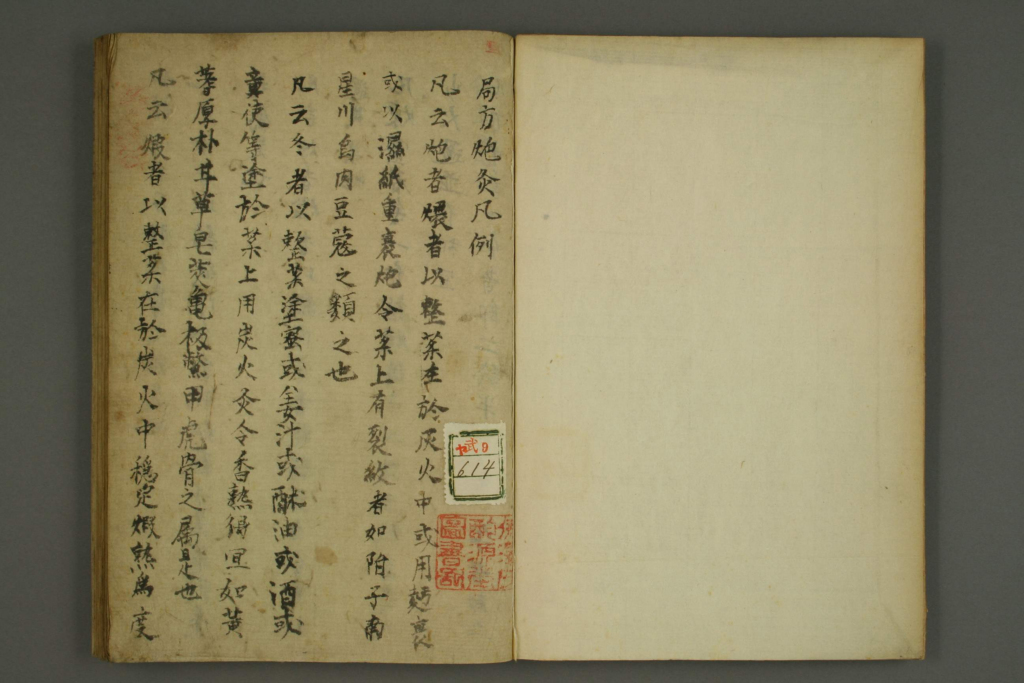 局方炮灸凡例
凡云炮者煨者以整藥在於灰火中或用麪裹
或以濕紙重裹炮令藥上有裂紋者如附子南
星川烏肉豆蔻之類之也
凡云冬者以整藥塗蜜或姜汁或酥油或酒或
童使等塗於藥上用炭火灸令香熟得冝如黃
蓍厚朴甘草皂莢亀板鱉甲虎骨之属是也
凡云煆者以整藥在於炭火中穩定煆熟為度
武田
614
圖書記